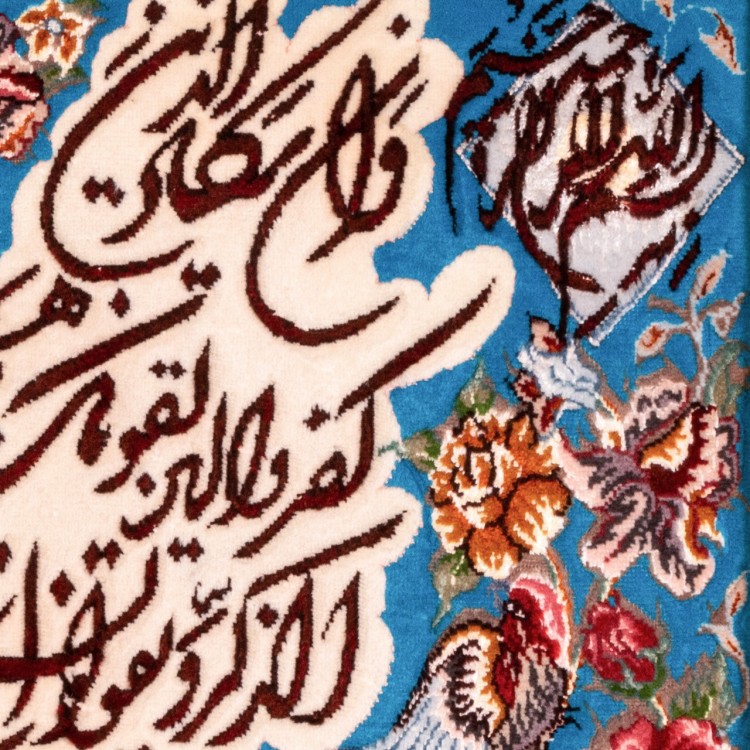 بسم الله الرحمن الرحیم
وان یکاد الذین
کفروا لیز لقونک
الذکر و یقولون